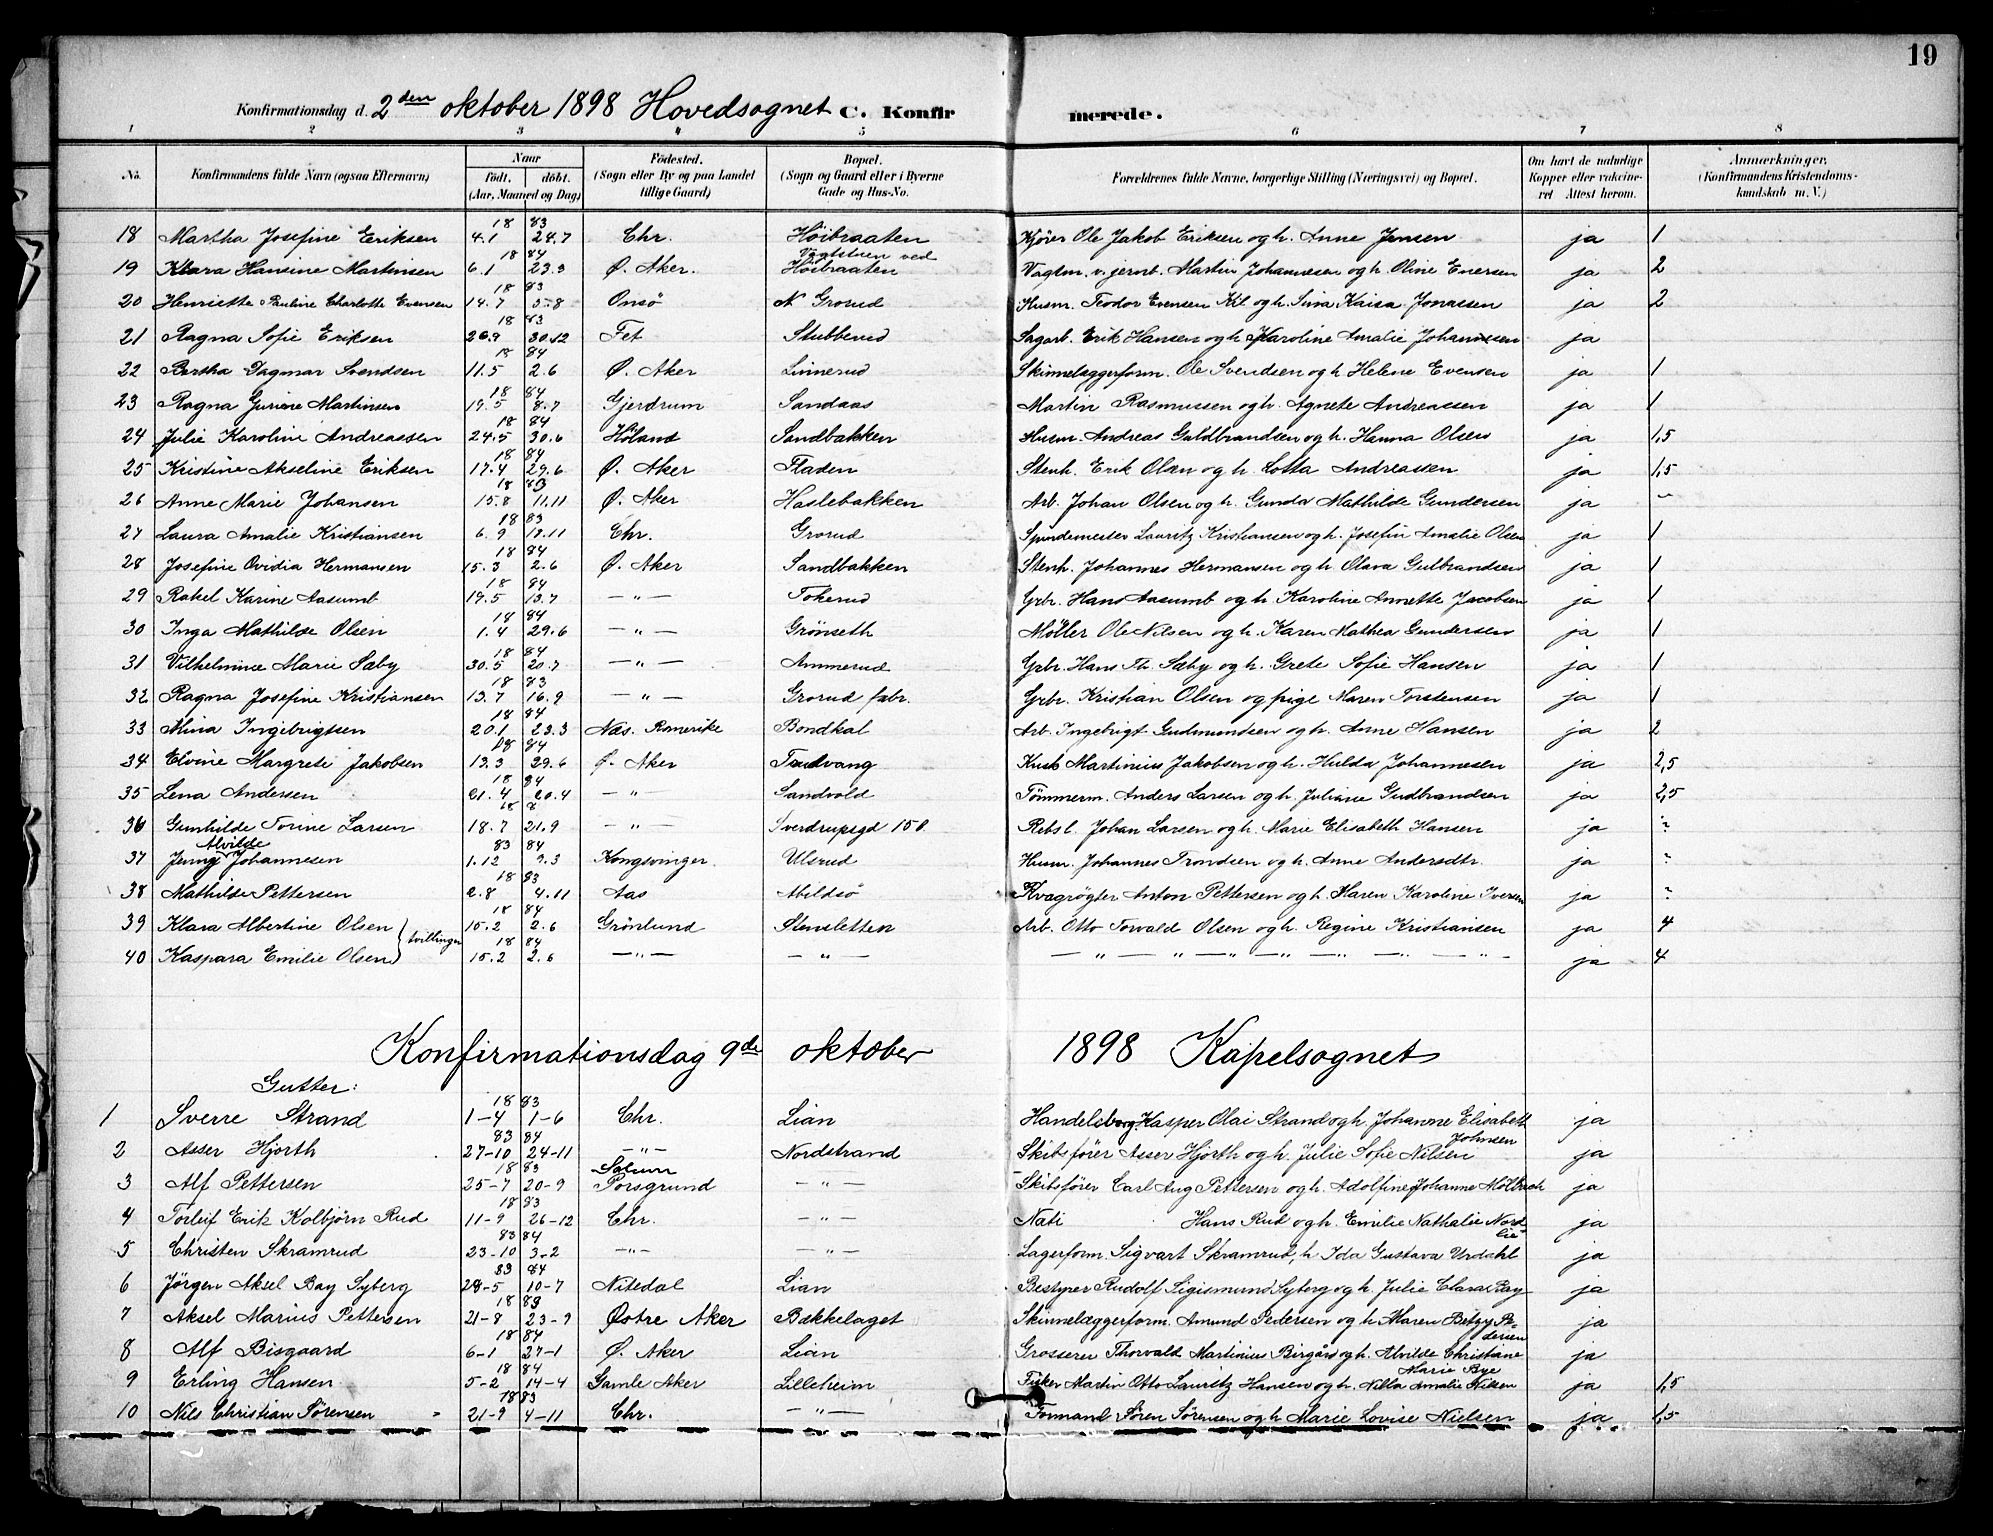 19
Konfirmationsdag d. 2den oktober 1898 Hovedsognet C. Konfirmerede.
1 2 3 4 5 6 7 8
No. Konfirmandens fulde Navn (ogsaa Efternavn) Naar født. døbt. (Aar, Maaned og Dag) Fødested. (Sogn eller By og paa Landet tillige Gaard) Bopæl. (Sogn og Gaard eller i Byerne Gade og Hus-No. Forældrenes fulde Navne, borgerlige Stilling (Næringsvei) og Bopæl. Om havt de naturlige Kopper eller vakcineret Attest herom. Anmærkninger. (Konfirmandens Kristendomskundskab m. V.)
18 Martha Josefine Eriksen 18 83 4.1 24.7 Chr. Höibraaten Kjörer Ole Jakob Eriksen og h. Anne Jensen ja 1
19 Klara Hansine Martinsen 18 84 6.1 23.3 Ø. Aker. Vagtstuen ved Höibraaten Vagtm. v. jernb. Martin Johannesen og h. Oline Enersen ja 2
20 Henriette Pauline Charlotte Evensen 18 83 14.7 5-8 Onsö N Grorud Husm. Teodor Evensen Kil og h. Sina Kaisa Jonassen ja 2
21 Ragna Sofie Eriksen 18 83 26.9 30.12 Fet Stubberud Sagarb. Erik Hansen og h Karoline Amalie Johannesen ja
22 Bertha Dagmar Svendsen 18 84 11.5 2.6 Ø. Aker Linnerud Skinnelæggerform. Ole Svendsen og h Helene Evensen ja 1
23 Ragna Gurine Martinsen 18 84 19.5 8.7 Gjerdrum Sandaas Martin Rasmussen og h. Agnete Andreassen ja 1
24 Julie Karoline Andreassen 18 84 24.5 30.6 Höland Sandbakken Husm. Andreas Guldbrandsen og h. Hanna Olsen ja 1,5
25 Kristine Akseline Eriksen 18 84 17.4 29.6 Ø. Aker Fladen Stenh. Erik Olsen og h. Lotta Andreassen ja 1,5
26 Anne Marie Johansen 18 83 15.8 11.11 Ø. Aker Haslebakken Arb. Johan Olsen og h. Gunda Mathilde Gundersen ja
27 Laura Amalie Kristiansen 18 83 6.9 18.11 Chr. Grorud Spindemester Lauritz Kristiansen og h. Josefin Amalie Olsen ja 1
28 Josefine Ovidia Hermansen 18 84 15.3 2.6 Ø. Aker Sandbakken Stenh. Johannes Hermansen og h. Olava Gulbrandsen ja 1
29 Rakel Karine Aasumb 18 84 19.5 13.7 — " — Tokerud Grbr. Hans Aasumb og h. Karoline Annette Jacobsen ja 1
30 Inga Mathilde Olsen 18 84 1.4 29.6 — " — Grönseth Möller Ole Nilsen og h. Karen Mathea Gundersen ja 1
31 Vilhelmine Marie Sæby 18 84 30.5 20.7 — " — Ammerud Grbr. Hans Th. Sæby og h. Grete Sofie Hansen ja 1
32 Ragna Josefine Kristiansen 18 83 13.7 16.9 — " — Grorud fabr. Grbr. Kristian Olsen og pige Maren Torstensen ja 1
33 Mina Ingebrigtsen 18 84 20.1 23.3 Næs. Romerike Bondkal Arb. Ingebrigt Gudmundsen og h. Anne Hansen ja 2
34 Elvine Margrete Jakobsen 18 84 13.3 29.6 Ø. Aker Trudvang Kusk Martinius Jakobsen og h. Hulda Johannesen ja 2,5
35 Lena Andersen 18 84 21.4 20.4 — " — Sandvold Tömmerm. Anders Larsen og h. Juliane Gudbrandsen ja 2,5
36 Gunhilde Torine Larsen 18 8 18.7 21.9 — " — Sverdrupsgd 15 b. Rebsl. Johan Larsen og h. Marie Elisabeth Hansen ja ?
37 Jenny Alvilde Johannesen 83 84 1.12 9.3 Kongsvinger. Ulsrud Husm. Johannes Trondsen og h. Anne Andersdtr. ja ?
38 Mathilde Pettersen 18 83 2.8 4.11 Aas Abildsö Kvægrögter Anton Pettersen og h. Maren Karoline Iversen ja ?
39 Klara Albertine Olsen 18 84 15.2 2.6 Grönlund Stensletten Arb. Otto Torvald Olsen og h. Regine Kristiansen ja 4
tvillinger
40 Kaspara Emilie Olsen 18 84 15.2 2.6 — " — — " — — " — " — " — " — " — " — ja 4
Konfirmationsdag 9de oktober 1898 Kapelsognet
Gutter:
1 Sverre Strand 18 83 1-4 1-6 Chr. Lian Handelsborg. Kasper Olai Strand og h. Johanne Elisabeth Johnsen ja
2 Asser Hjorth 83 84 27-10 24-11 — " — Nordstrand Skibsfører Asser Hjorth og h. Julie Sofie Nilsen ja
3 Alf Pettersen 18 83 25-7 20-9 Solum Porsgrund — " — Skibsfører Carl Aug Pettersen og h. Adolfine Johanne Mölbach ja
4 Torleif Erik Kolbjörn Rud 18 83 11-9 26-12 Chr. — " — Nati Hans Rud og h. Emilie Nathalie Nordlie ja
5 Christen Skramrud 83 84 23-10 3-2 — " — — " — Lagerform. Sigvart Skramrud, h Ida Gustava Urdahl ja
6 Jørgen Aksel Bay Syberg 83 84 28-5 10-7 Nitedal Lian Bestyrer Rudolf Sigismund Syberg og h. Julie Clara Bay ja
7 Aksel Marius Pettersen 18 83 21-8 23-9 Østre Aker Bækkelaget Skinnelæggerform. Amund Pedersen og h Maren Betzy Pedersen ja
8 Alf Bisgaard 18 84 6-1 27-1 Ø. Aker Lian Grosserer Thorvald Martinius Birgård og h. Alvilde Christiane Marie Bye ja
9 Erling Hansen 18 84 5-2 14-4 Gamle Aker Lilleheim Fisker Martin Otto Lauritz Hansen og h. Nilla Amalie Nilsen ja 1,5
10 Nils Christian Sørensen 18 83 21-9 4-11 Chr. — " — Formand Søren Sørensen og h Marie Lovise Nielsen ja 1,5